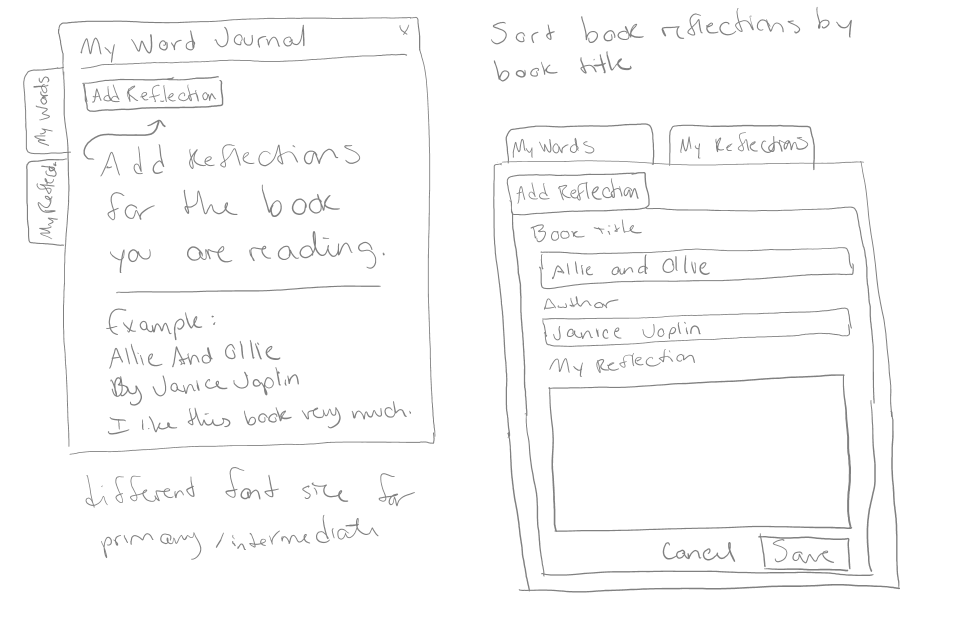 My Word Journal
x
My Words
My Reflect.
Add Reflection
Add Reflections
for the book
you are reading.
Example:
Allie And Ollie
By Janice Joplin
I like this book very much.
different font size for
primary/intermediate
Sort book reflections by
book title
My Words
My Reflections
Add Reflection
Book Title
Allie and Ollie
Author
Janice Joplin
My Reflection
Cancel
Save